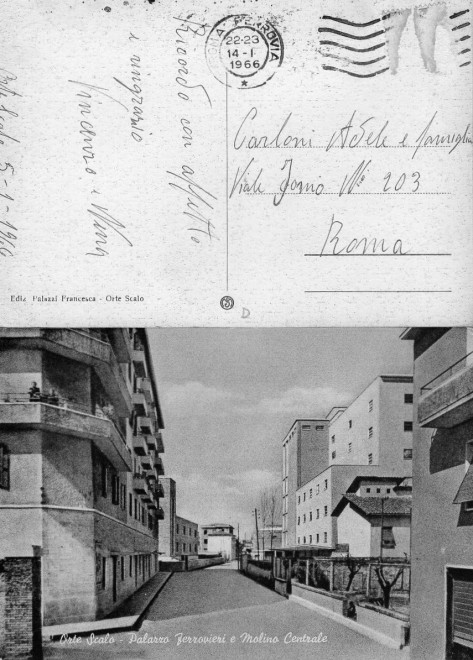 ROMA FERROVIA
22-23
14-I
1966
Ricordo con affetto
e ringrazio
Vincenzo e Nina
Orte Scalo 5-1-1966
Carloni Adele e famiglia
Viale Jonio Nº 203
Roma
Ediz. Palazzi Francesca - Orte Scalo
D
Orte Scalo - Palazzo Ferrovieri e Molino Centrale